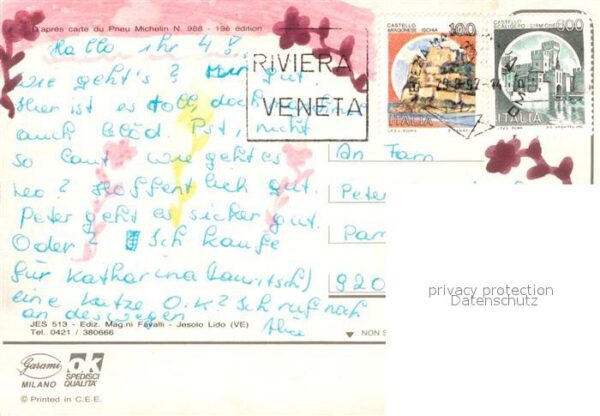 D'après carte du Pneu Michelin N. 988 - 19è édition
Hallo ihr 4!
wie geht's? Mir gut.
Hier ist es toll, doch
auch Blöd. Pst, nicht
so laut wie geht es
Leo? Hoffentlich gut.
Peter geht es sicher gut.
Oder? Ich kaufe
für Katharina (Lauritsch)
eine Katze O.K? Ich ruf noch
an deswegen
Alice
RIVIERA
VENETA
CASTELLO
ARAGONESE ISCHIA
100
ITALIA
CASTELLO
SCALIGERO - SIRMIONE
300
ITALIA
An Fam
Peter
Par
920
privacy protection
Datenschutz
JES 513 - Ediz. Mag.ni Favalli - Jesolo Lido (VE)
Tel. 0421 / 380666
NON S
Garami
MILANO
OK
SPEDISCI
QUALITÀ
© Printed in C.E.E.